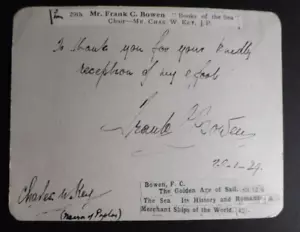 29th Mr. Frank C. Bowen "Books of the Sea"
Chair—Mr. Chas. W. Key, J.P.
To thank you for your kindly
reception of my effort
Frank C Bowen
25-1-29.
Charles W. Key
(Mayor of Poplar)
Bowen, F. C.
The Golden Age of Sail.
The Sea Its History and Romance
Merchant Ships of the World.